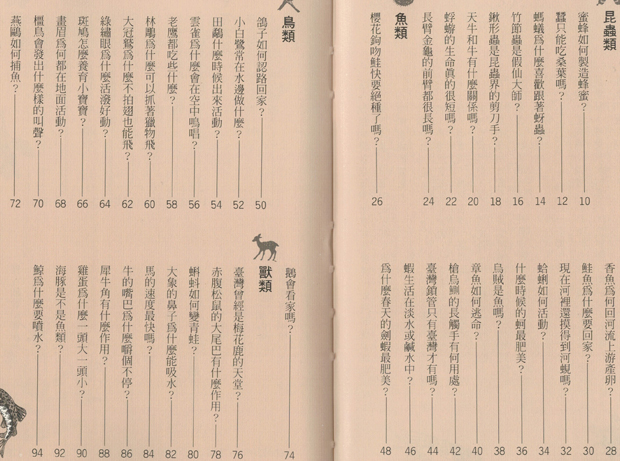 昆蟲類
蜜蜂如何製造蜂蜜？ 10
蠶只能吃桑葉嗎？ 12
螞蟻爲什麼喜歡跟著蚜蟲？ 14
竹節蟲是假仙大師？ 16
鍬形蟲是昆蟲界的剪刀手？ 18
天牛和牛有什麼關係嗎？ 20
蜉蝣的生命眞的很短嗎？ 22
長臂金龜的前臂都很長嗎？ 24
魚類
櫻花鉤吻鮭快要絕種了嗎？ 26
香魚爲何回河流上游產卵？ 28
鮭魚爲什麼要回家？ 30
現在河裡還摸得到河蜆嗎？ 32
蛤蜊如何活動？ 34
什麼時候的蚵最肥美？ 36
烏賊是魚嗎？ 38
章魚如何逃命？ 40
槍烏鰂的長觸手有何用處？ 42
臺灣鎖管只有臺灣才有嗎？ 44
蝦生活在淡水或鹹水中？ 46
爲什麼春天的劍蝦最肥美？ 48
鳥類
鴿子如何認路回家？ 50
小白鷺常在水邊做什麼？ 52
田鷸什麼時候出來活動？ 54
雲雀爲什麼會在空中鳴唱？ 56
老鷹都吃些什麼？ 58
林鵰爲什麼可以抓著獵物飛？ 60
大冠鷲爲什麼不拍翅也能飛？ 62
綠繡眼爲什麼活潑好動？ 64
斑鳩怎麼養育小寶寶？ 66
畫眉爲何都在地面活動？ 68
櫃鳥會發出什麼樣的叫聲？ 70
燕鷗如何捕魚？ 72
鵝會看家嗎？ 74
獸類
臺灣曾經是梅花鹿的天堂？ 76
赤腹松鼠的大尾巴有什麼作用？ 78
蝌蚪如何變青蛙？ 80
大象的鼻子爲什麼能吸水？ 82
馬的速度最快嗎？ 84
牛的嘴巴爲什麼嚼個不停？ 86
犀牛角有什麼作用？ 88
雞蛋爲什麼一頭大一頭小？ 90
海豚是不是魚類？ 92
鯨爲什麼要噴水？ 94